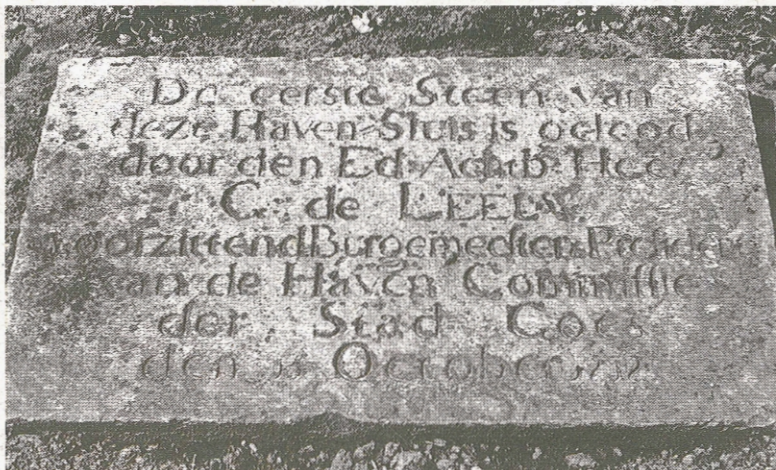 De eerste Steen van
deze Haven-Sluis is geleod
door den Ed: Achtb: Heer
C: de LEEUW
voorzittend Burgemeester Preside
van de Haven Committie
der Stad Goes
den October